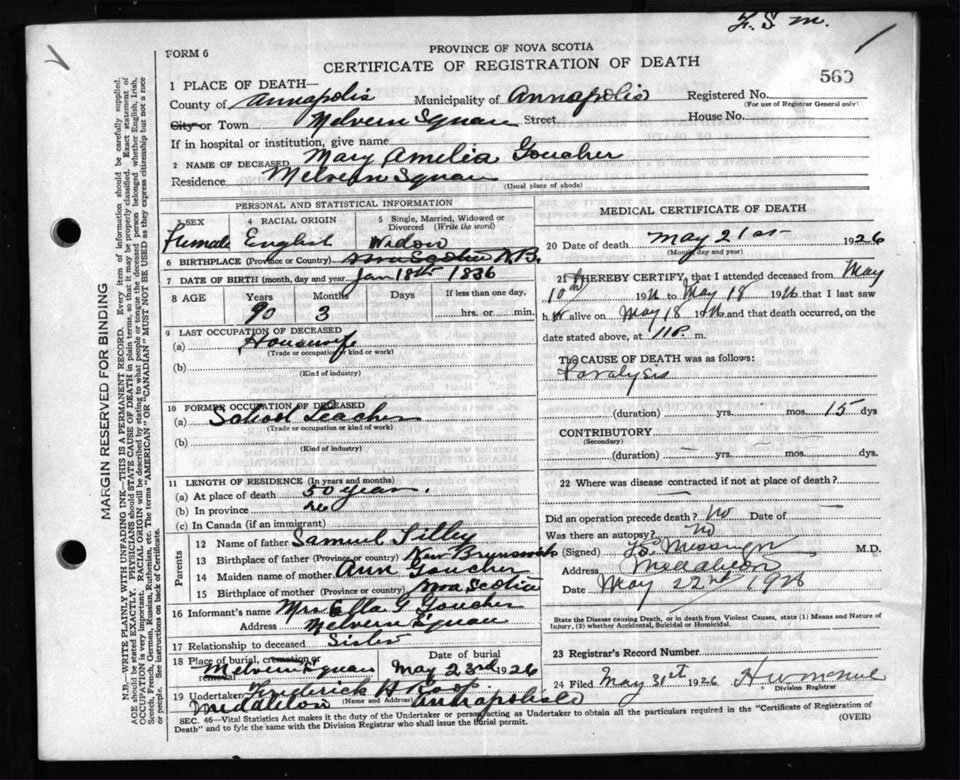 F. S. M.
FORM 6
PROVINCE OF NOVA SCOTIA
CERTIFICATE OF REGISTRATION OF DEATH
560
1 PLACE OF DEATH—
County of Annapolis Municipality of Annapolis Registered No.
(For use of Registrar General only)
City or Town Melvern Square Street House No.
If in hospital or institution, give name
2 NAME OF DECEASED Mary Amelia Goucher
Residence Melvern Square
(Usual place of abode)
PERSONAL AND STATISTICAL INFORMATION
3 SEX 4 RACIAL ORIGIN 5 Single, Married, Widowed or Divorced (Write the word)
Female English Widow
6 BIRTHPLACE (Province or Country) Nova Scotia N.B.
7 DATE OF BIRTH (month, day and year) Jan 18th 1836
8 AGE Years Months Days If less than one day,
90 3 hrs. or min.
9 LAST OCCUPATION OF DECEASED
(a) Housewife
(Trade or occupation or kind of work)
(b)
(Kind of industry)
10 FORMER OCCUPATION OF DECEASED
(a) School Teacher
(Trade or occupation or kind of work)
(b)
(Kind of industry)
11 LENGTH OF RESIDENCE (In years and months)
(a) At place of death 50 years.
(b) In province
(c) In Canada (if an immigrant)
Parents
12 Name of father Samuel Tilley
13 Birthplace of father (Province or country) New Brunswick
14 Maiden name of mother Ann Goucher
15 Birthplace of mother (Province or country) Nova Scotia
16 Informant's name Mrs Ella G Goucher
Address Melvern Square
17 Relationship to deceased Sister
18 Place of burial, cremation or removal Date of burial
Melvern Square May 23rd 1926
19 Undertaker Frederick
Middleton (Name and Address) Annapolis Co
MEDICAL CERTIFICATE OF DEATH
20 Date of death May 21st 1926
(Month, day and year)
21 I HEREBY CERTIFY, that I attended deceased from May
10th 1926 to May 18 1926 that I last saw
her alive on May 18 1926 and that death occurred, on
date stated above, at 11 P. m.
The CAUSE OF DEATH was as follows:
Paralysis
(duration) yrs. mos. 15 dys
CONTRIBUTORY
(Secondary)
(duration) yrs. mos. dys.
22 Where was disease contracted if not at place of death?
Did an operation precede death? No Date of
Was there an autopsy? No
(Signed) Messinger M.D.
Address Middleton
Date May 22nd 1926
State the Disease causing Death, or in death from Violent Causes, state (1) Means and Nature of Injury, (2) whether Accidental, Suicidal or Homicidal.
23 Registrar's Record Number
24 Filed May 31st 1926
Division Registrar
SEC. 46—Vital Statistics Act makes it the duty of the Undertaker or person acting as Undertaker to obtain all the particulars required in the "Certificate of Registration of
Death" and to fyle the same with the Division Registrar who shall issue the burial permit.
(OVER)
MARGIN RESERVED FOR BINDING
N.B.—WRITE PLAINLY WITH UNFADING INK—THIS IS A PERMANENT RECORD. Every item of information should be carefully supplied.
AGE should be stated EXACTLY. PHYSICIANS should STATE CAUSE OF DEATH in plain terms, so that it may be properly classified. Exact statement of
OCCUPATION is very important. RACIAL ORIGIN will be described by stating to what people or tongue the deceased person belonged whether English, Irish,
Scotch, French, German, Russian, Ruthenian, etc. The terms "AMERICAN" OR "CANADIAN" MUST NOT BE USED as they express citizenship but not a race
or people. See instructions on back of Certificate.